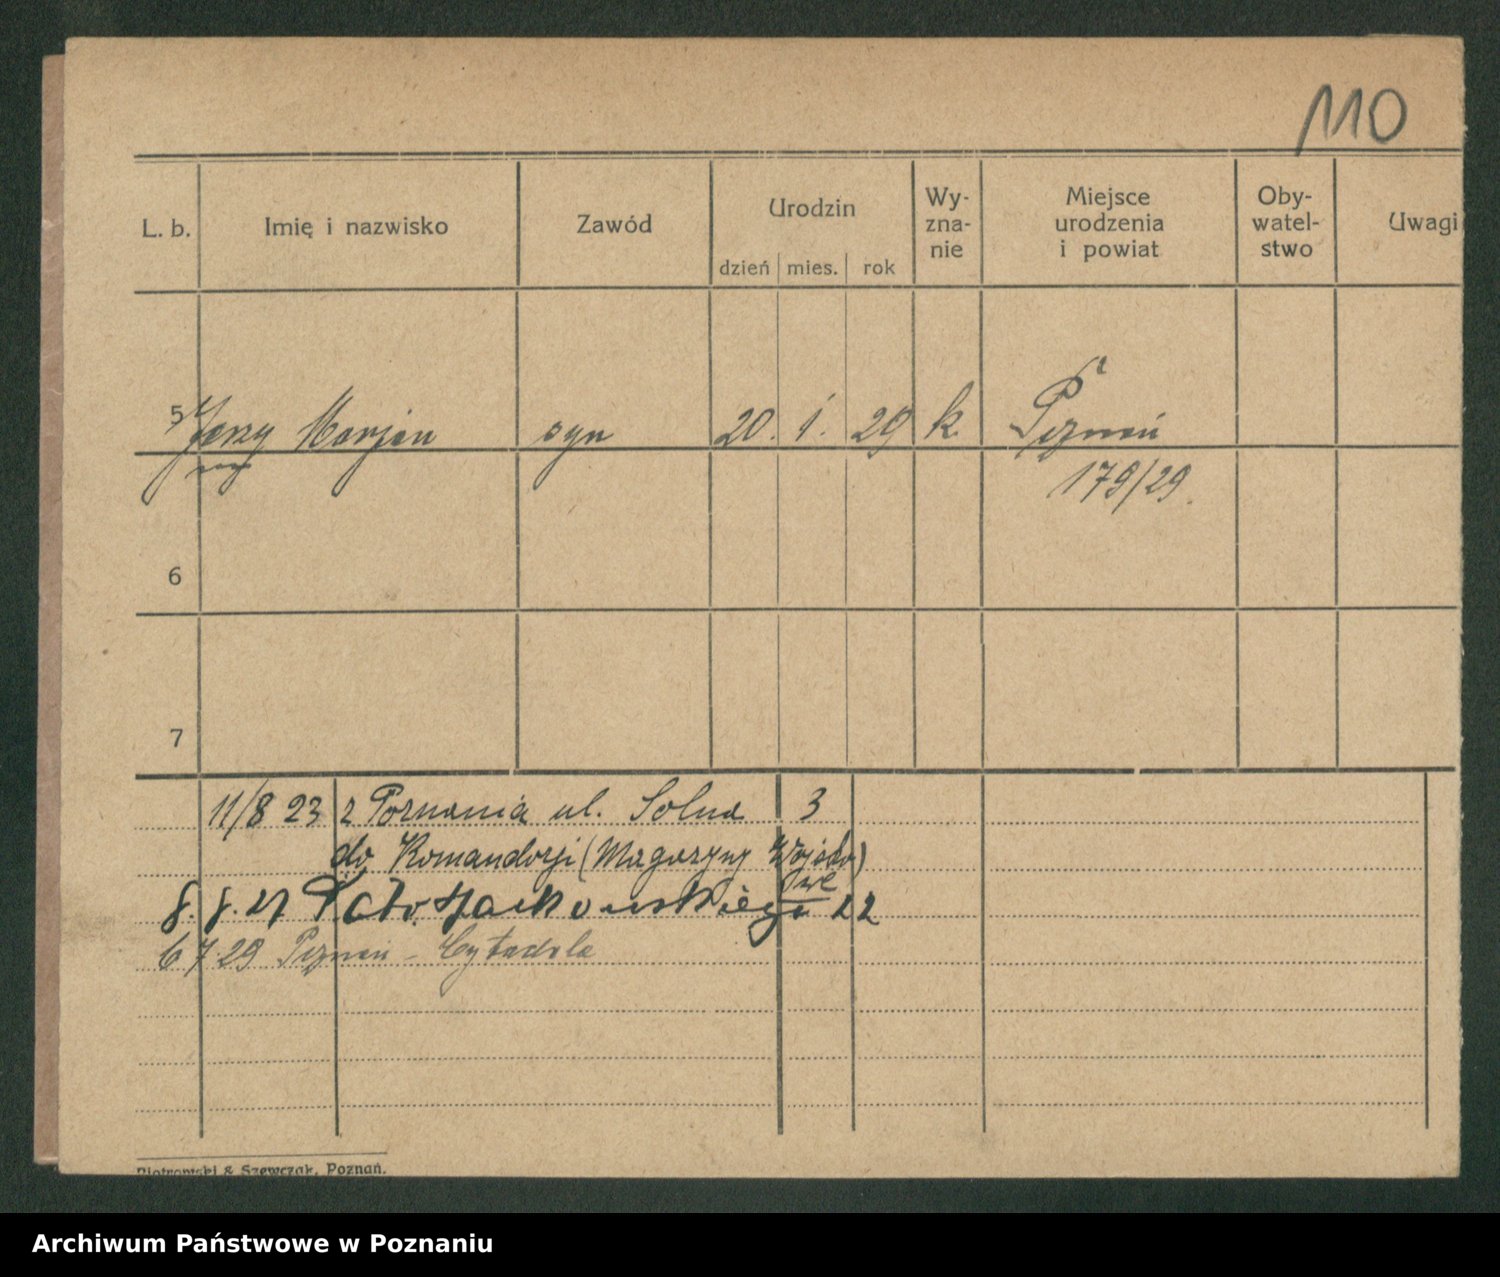 110
L. b. Imię i nazwisko Zawód Urodzin Wy- Miejsce Oby- Uwagi
zna- urodzenia watel-
nie i powiat stwo
dzień mies. rok
5 Jerzy Marjan syn 20. 1. 29 k. Poznań
179/29.
6
7
11/8 23 z Poznania ul. Solna 3
do Komandorji (Magazyny Wojsko)
we
8. 8. 27 Jackowskiego 22
6 7 29 Poznań - Cytadela
Piotrowski & Szewczak, Poznań.
Archiwum Państwowe w Poznaniu